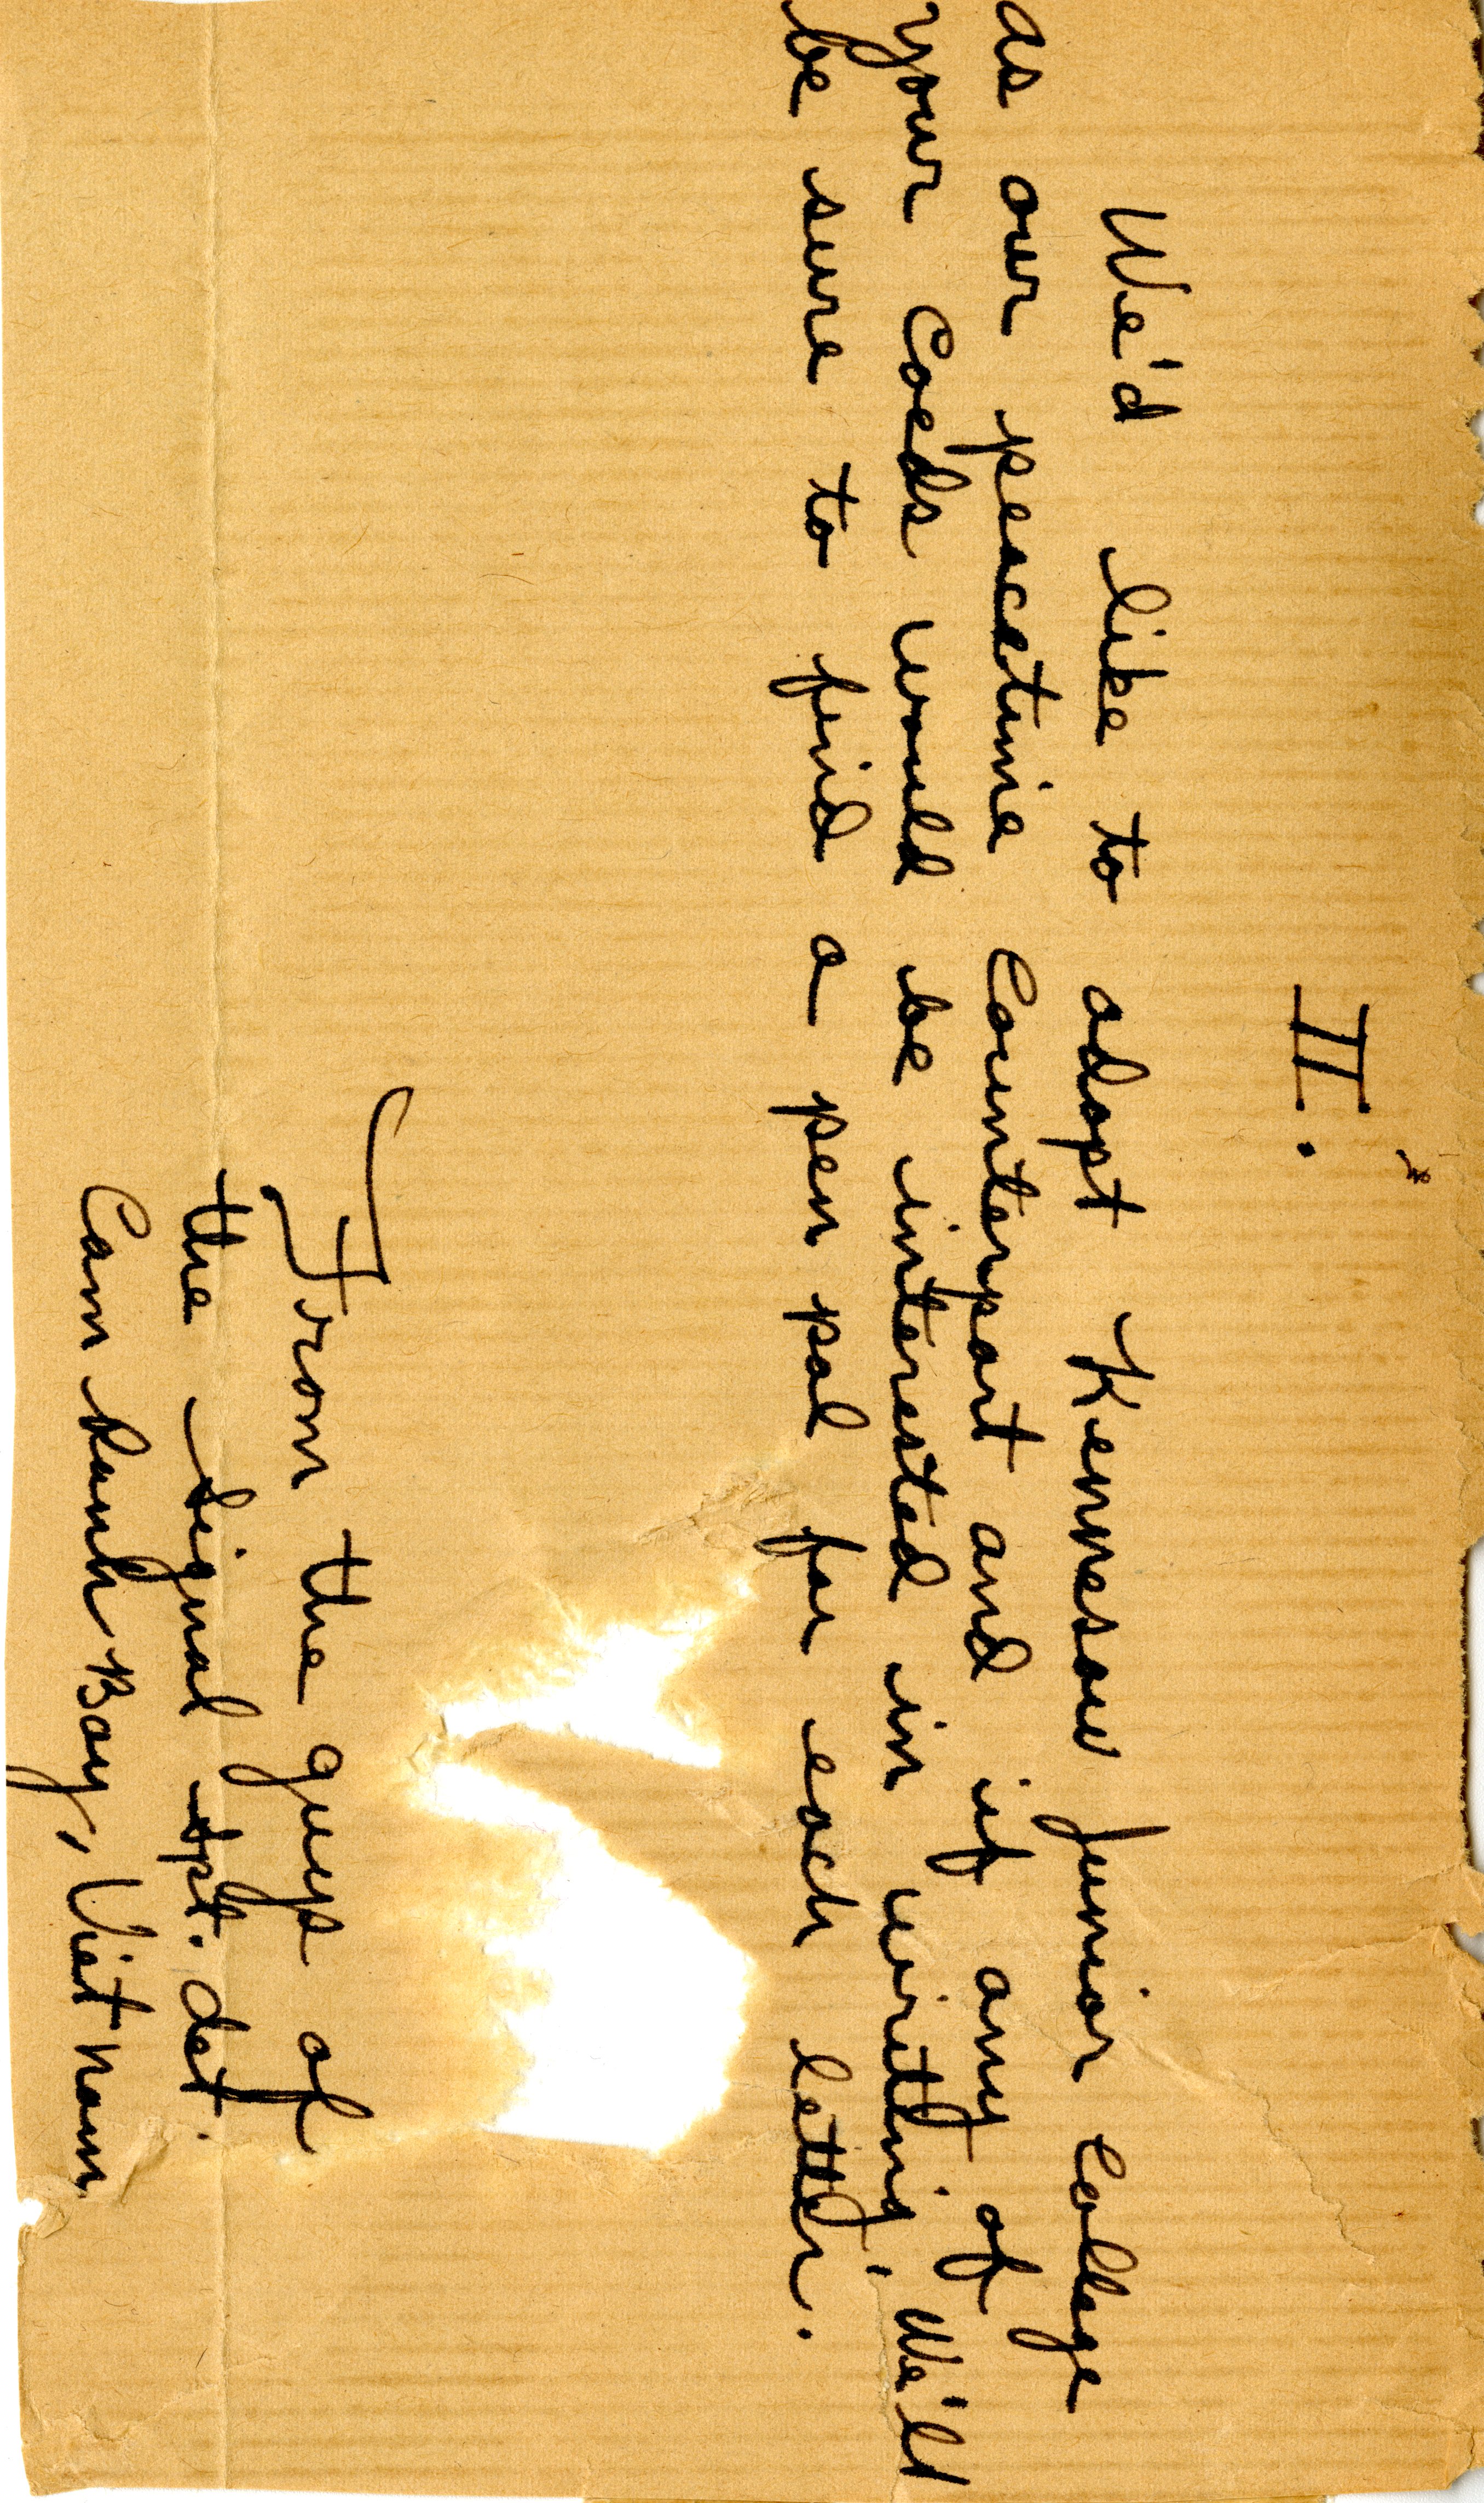 II.
We'd like to adopt Kennesaw Junior College
as our peacetime counterpart and if any of
your Coeds would be interested in writing, We'll
be sure to find a pen pal for each letter.
From the guys of
the Signal spt. det.
Cam Ranh Bay, Viet nam